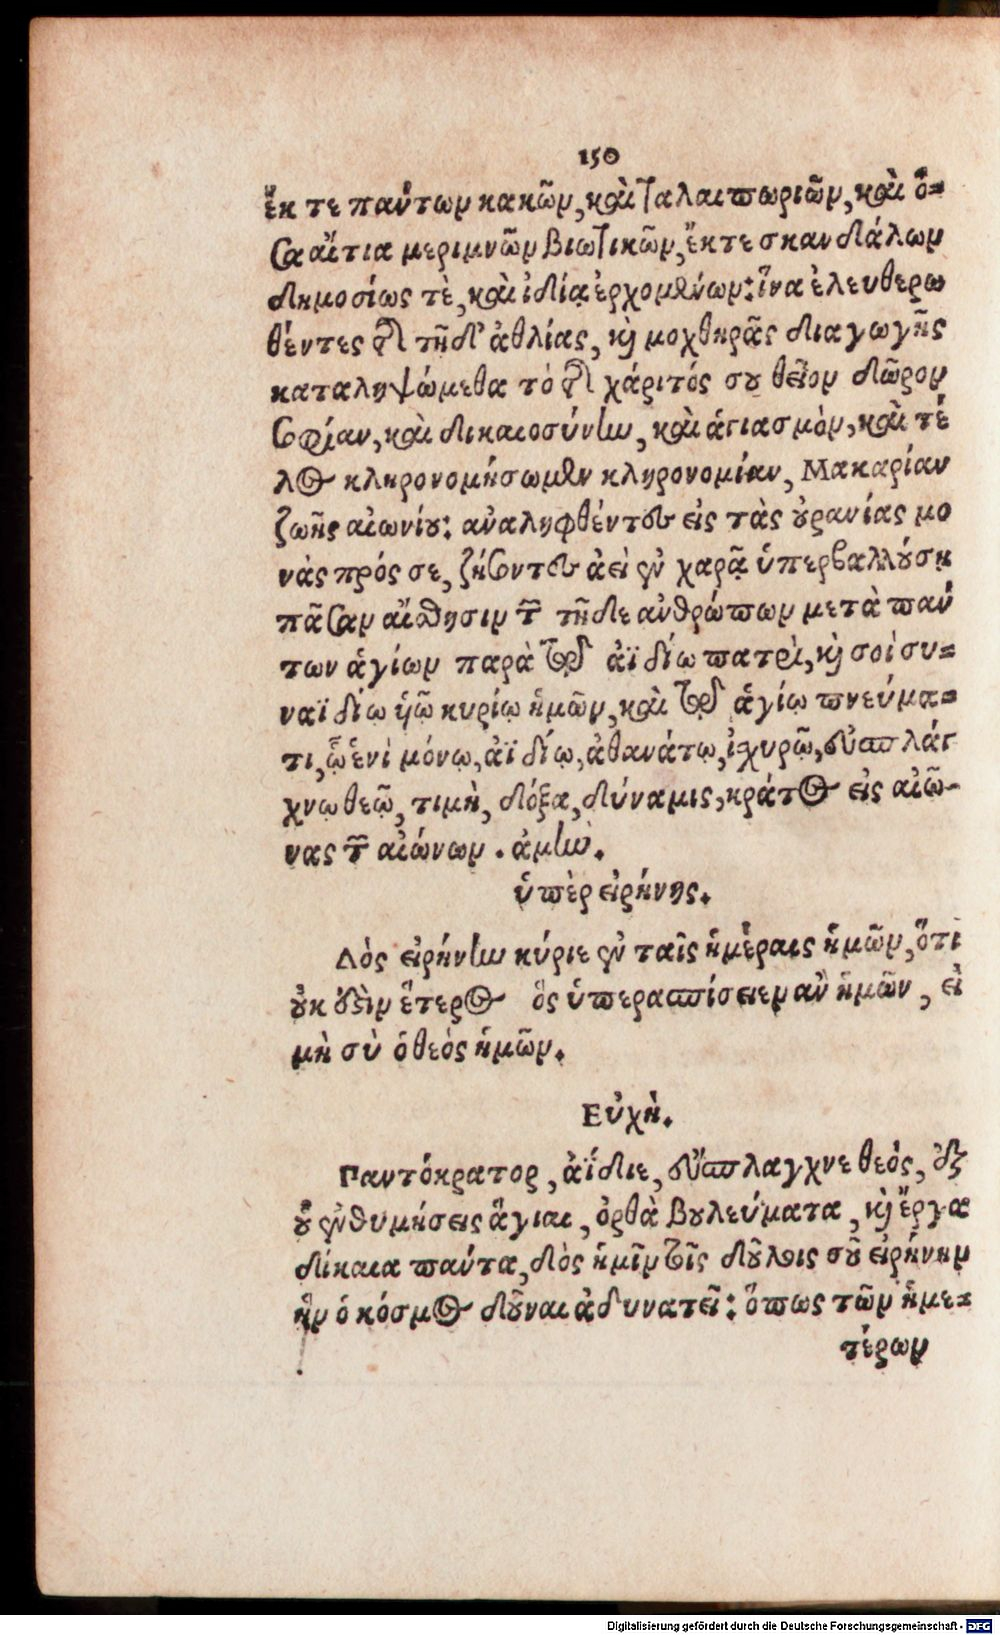 150
ἔκ τε πάντων κακῶν, καὶ ταλαιπωριῶν, καὶ ὅ=
σα αἴτια μεριμνῶν βιωτικῶν, ἔκτε σκανδάλων
δημοσίως τὲ, καὶ ἰδίᾳ ἐρχομένων: ἵνα ἐλευθερω
θέντες ἀπὸ τῆσδ' ἀθλίας, καὶ μοχθηρᾶς διαγωγῆς
καταληψώμεθα τὸ τῆς χάριτός σου θεῖον δῶρον
σοφίαν, καὶ δικαιοσύνην, καὶ ἁγιασμὸν, καὶ τέ
λος κληρονομήσωμεν κληρονομίαν, Μακαρίαν
ζωῆς αἰωνίου: ἀναληφθέντες εἰς τὰς οὐρανίας μο
νὰς πρός σε, ζήσοντες ἀεὶ ἐν χαρᾷ ὑπερβαλλούσῃ
πᾶσαν αἴσθησιν τῶν τῇδε ἀνθρώπων μετὰ πάν
των ἁγίων παρὰ τῷ ἀϊδίω πατρὶ, καὶ σοὶ συ=
ναϊδίῳ ὑῷ κυρίῳ ἡμῶν, καὶ τῷ ἁγίῳ πνεύμα=
τι, ᾧ ἑνὶ μόνῳ, ἀϊδίῳ, ἀθανάτῳ, ἰχυρῷ, εὐσπλάγ
χνῳ θεῷ, τιμὴ, δόξα, δύναμις, κράτος εἰς αἰῶ-
νας τῶν αἰώνων. ἀμὴν.
ὑπὲρ εἰρήνης.
Δὸς εἰρήνην κύριε ἐν ταῖς ἡμέραις ἡμῶν, ὅτι
οὐκ οὐδεὶν ἕτερος ὃς ὑπερασπίσειεν ἂν ἡμῶν, εἰ
μὴ σὺ ὁ θεὸς ἡμῶν.
Εὐχὴ.
Παντόκρατορ, ἀΐδιε, εὔσπλαγχνε θεὸς, ἐξ
οὗ ἐνθυμήσεις ἅγιαι, ὀρθὰ βουλεύματα, καὶ ἔργα
δίκαια πάντα, δὸς ἡμῖν τοῖς δούλοις σοῦ εἰρήνην
ἣν ὁ κόσμος δοῦναι ἀδυνατεῖ: ὅπως τῶν ἡμε=
τέρων
Digitalisierung gefördert durch die Deutsche Forschungsgemeinschaft - DFG